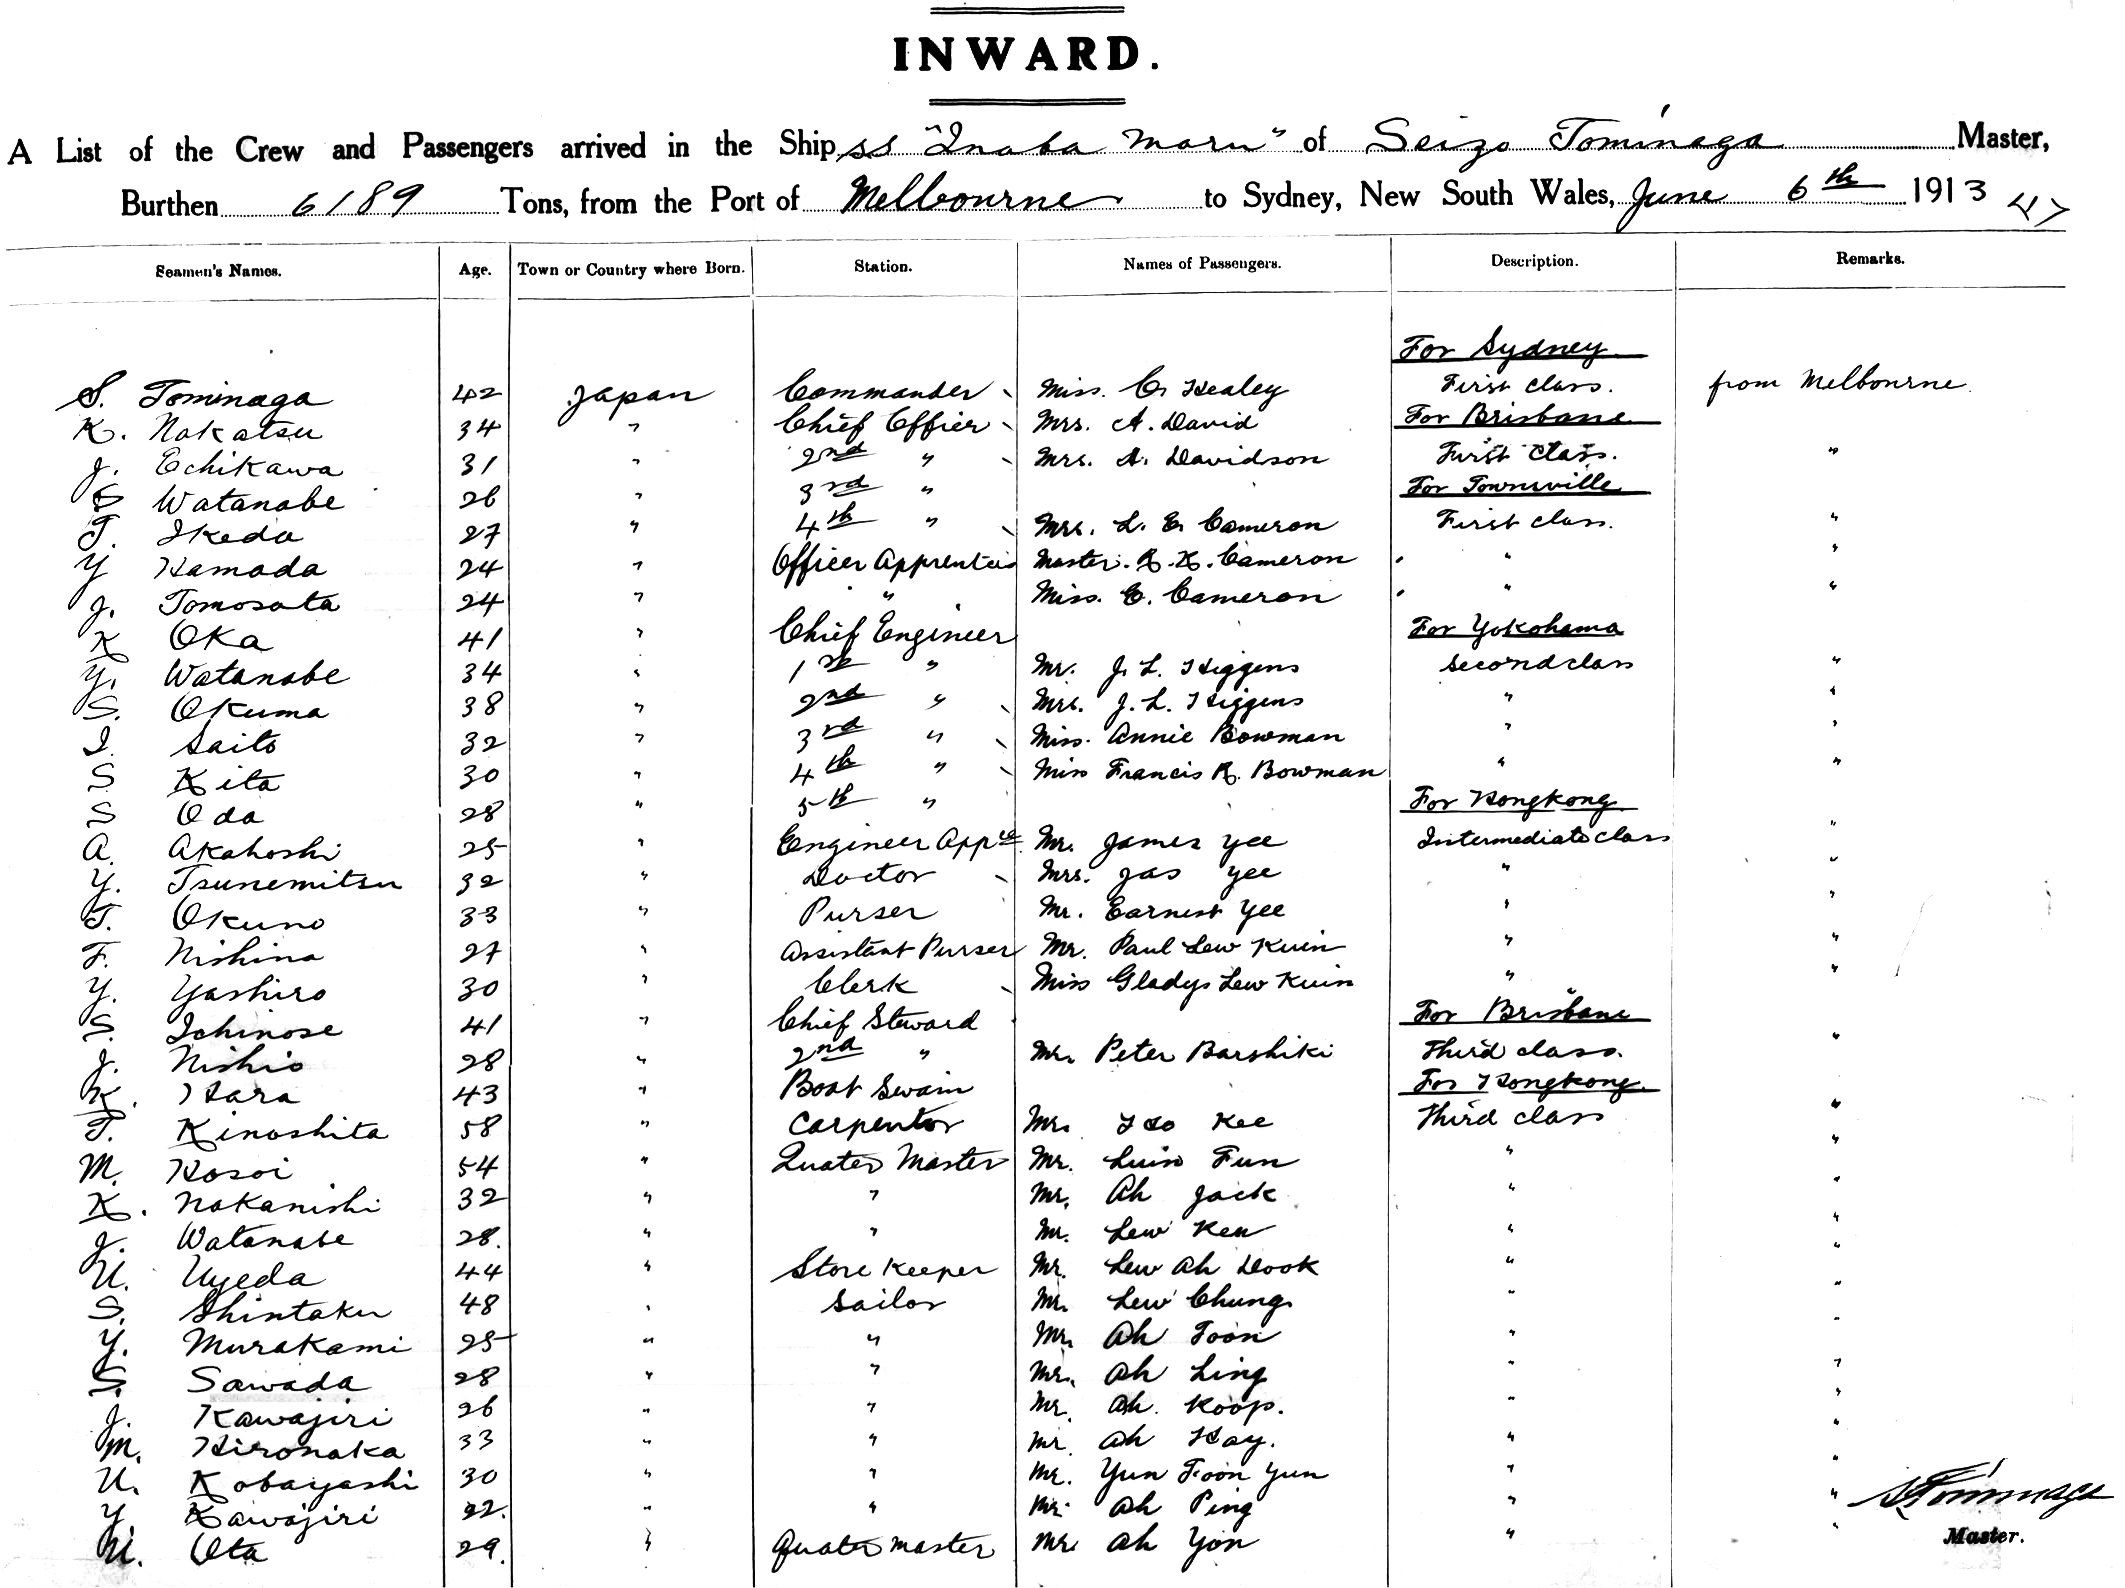 INWARD.
A List of the Crew and Passengers arrived in the Ship ss "Inaba Maru" of Seizo Tominaga Master,
Burthen 6189 Tons, from the Port of Melbourne to Sydney, New South Wales, June 6th 1913 47
Seamen's Names. Age. Town or Country where Born. Station. Names of Passengers. Description. Remarks.
For Sydney
S. Tominaga 42 Japan Commander Miss. C. Healey First class. from Melbourne
K. Nakatsu 34 " Chief Offier Mrs. A. David For Brisbane
J. Echikawa 31 " 2nd " Mrs. A. Davidson First class. "
S Watanabe 26 " 3rd " For Townsville
T. Ikeda 27 " 4th " Mrs. L. E. Cameron First class. "
Y Hamada 24 " Officer Apprenteis Master. R. K. Cameron " "
J. Tomosata 24 " " Miss. E. Cameron " "
K Oka 41 " Chief Engineer For Yokohama
Y. Watanabe 34 " 1st " Mr. J. L. Higgens second class "
S. Okuma 38 " 2nd " Mrs. J. L. Higgens " "
I. Saito 32 " 3rd " Miss. Annie Bowman " "
S Kita 30 " 4th " Miss Francis R. Bowman " "
S Oda 28 " 5th " For Hongkong
A. Akahoshi 25 " Engineer Appce Mr. James Yee Intermediate class "
Y. Tsunemitsu 32 " Doctor Mrs. Jas Yee " "
T. Okuno 33 " Purser Mr. Earnest Yee " "
F. Nishina 27 " Assistant Purser Mr. Paul Lew Kuin " "
Y. Yashiro 30 " Clerk Miss Gladys Lew Kuin " "
S. Ichinose 41 " Chief Steward For Brisbane
J. Nishio 28 " 2nd " Mr. Peter Barshiki Third class. "
K. Hara 43 " Boat Swain For Hongkong.
T. Kinoshita 58 " Carpentor Mr. Hee Third class "
M. Hosoi 54 " Quater Master Mr. Luin Fun " "
K. Nakanishi 32 " " Mr. Ah Jack " "
J. Watanabe 28. " " Mr. Lew Ken " "
U. Uyeda 44 " Store Keeper Mr. Lew Ah Dook " "
S. Shintaku 48 " Sailor Mr. Lew Chung " "
Y. Murakami 25 " " Mr. Ah Toon " "
S. Sawada 28 " " Mr. Ah Ling " "
J. Kawajiri 26 " " Mr. Ah. Koop. " "
M. Hironaka 33 " " Mr. Ah Hay. " "
U. Kobayashi 30 " " Mr. Yun Foon Yun " "
Y. Kawajiri 22. " " Mr. Ah Ping " " S Tominaga
U. Ota 29. " Quater master Mr. Ah Yon " " Master.